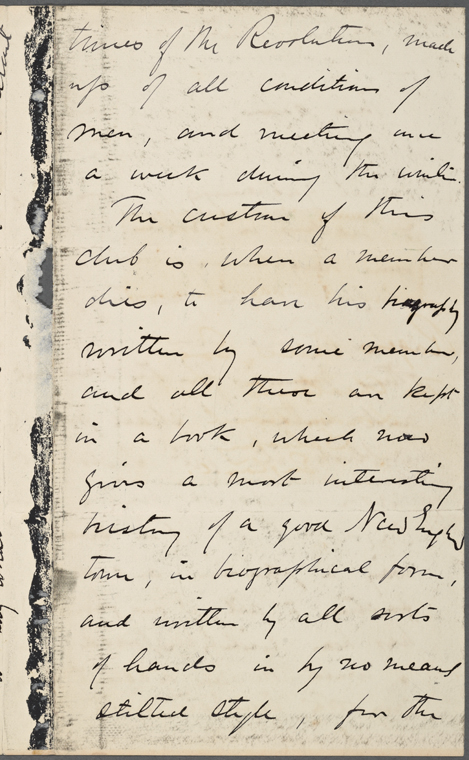 times of the Revolution, made
up of all conditions of
men, and meeting once
a week during the winter.
The custom of this
club is, when a member
dies, to have his biography
written by some member,
and all these are kept
in a book, which now
gives a most interesting
history of a good New England
town, in biographical form,
and written by all sorts
of hands in by no means
stilted style, for the